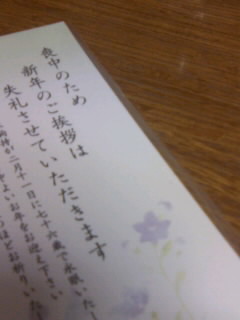 喪中のため
新年のご挨拶は
失礼させていただきます
二月十一日に七十六歳で永眠いたし
よいお年をお迎え下さい
お祈りいた